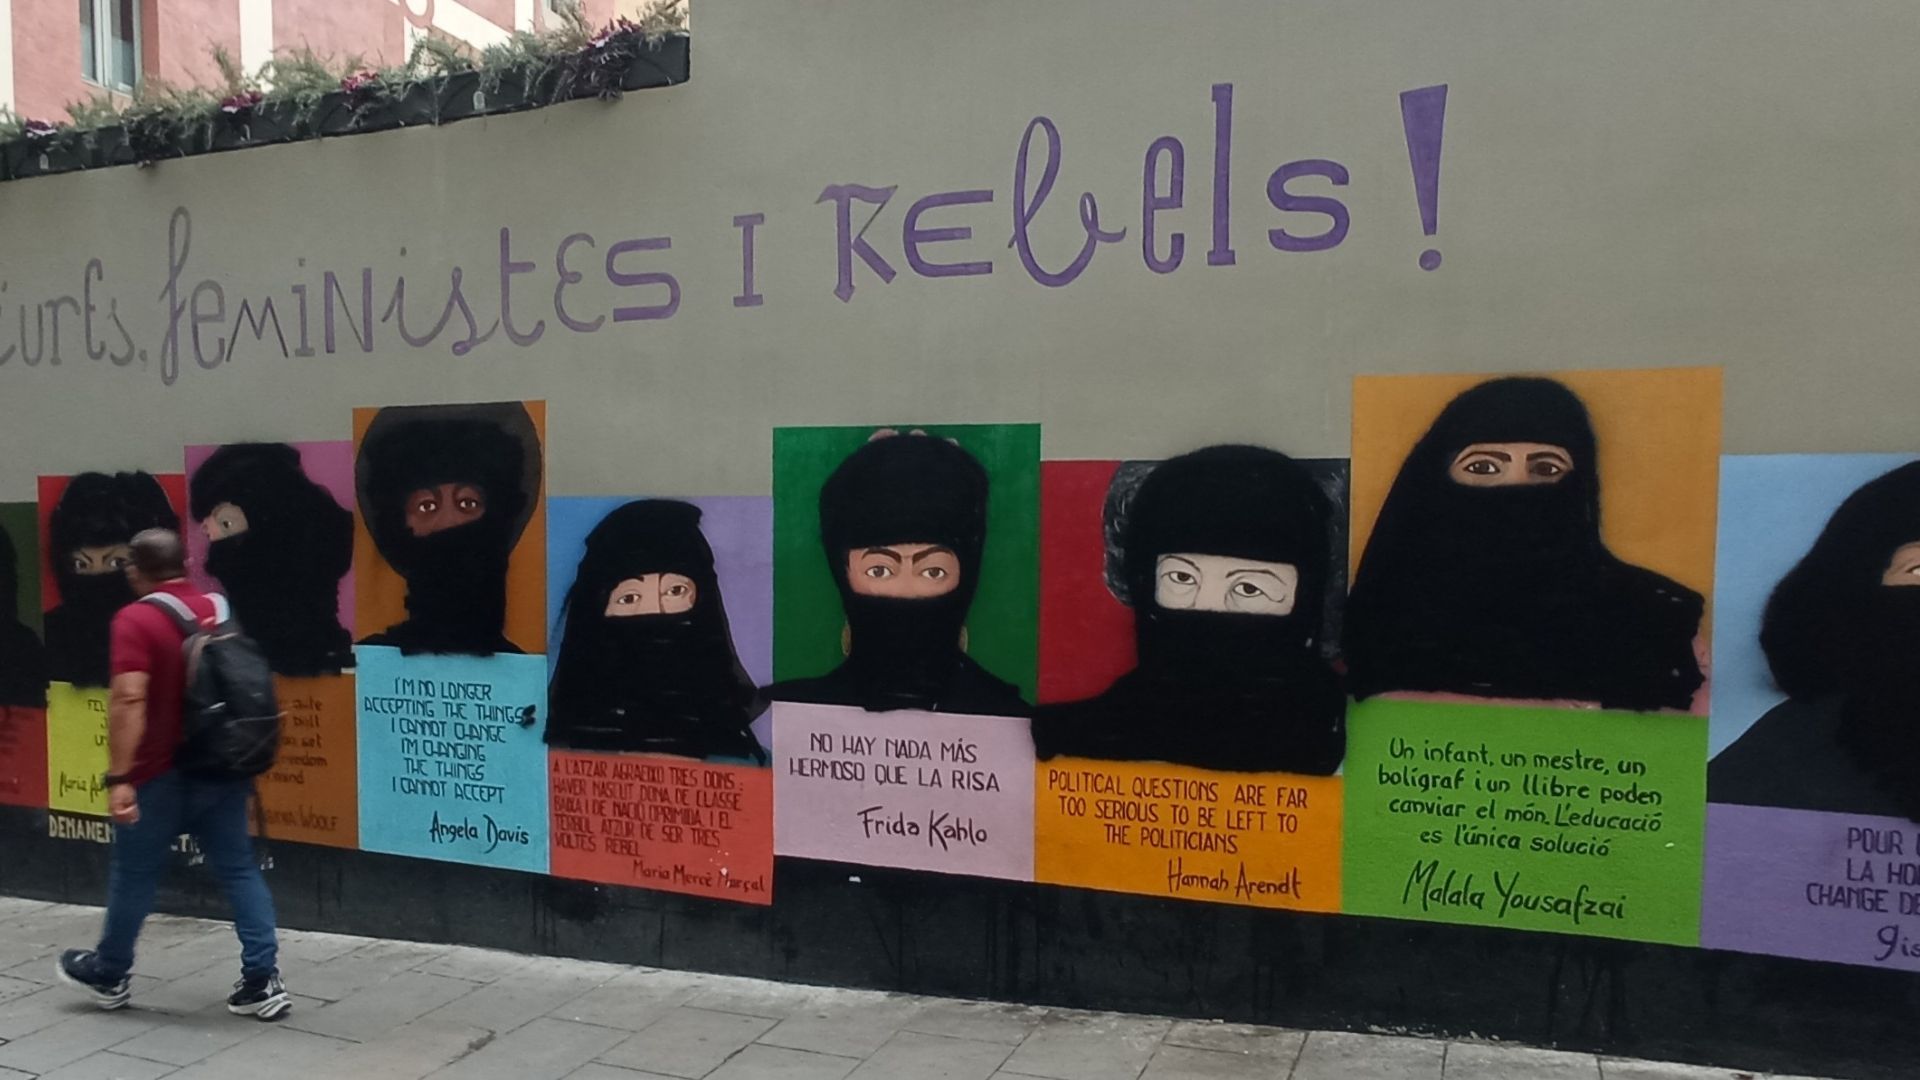 feministes i rebels!
FEL
María
DEMANEM
freedom
mind
WOOLF
I'M NO LONGER
ACCEPTING THE THINGS
I CANNOT CHANGE
I'M CHANGING
THE THINGS
I CANNOT ACCEPT
Angela Davis
A L'ATZAR AGRAEIXO TRES DONS:
HAVER NASCUT DONA, DE CLASSE
BAIXA I DE NACIÓ OPRIMIDA I EL
TÈRBOL ATZUR DE SER TRES
VOLTES REBEL
Maria Mercè Marçal
NO HAY NADA MÁS
HERMOSO QUE LA RISA
Frida Kahlo
POLITICAL QUESTIONS ARE FAR
TOO SERIOUS TO BE LEFT TO
THE POLITICIANS
Hannah Arendt
Un infant, un mestre, un
bolígraf i un llibre poden
canviar el món. L'educació
es l'única solució
Malala Yousafzai
POUR
LA HO
CHANGE DE
gis